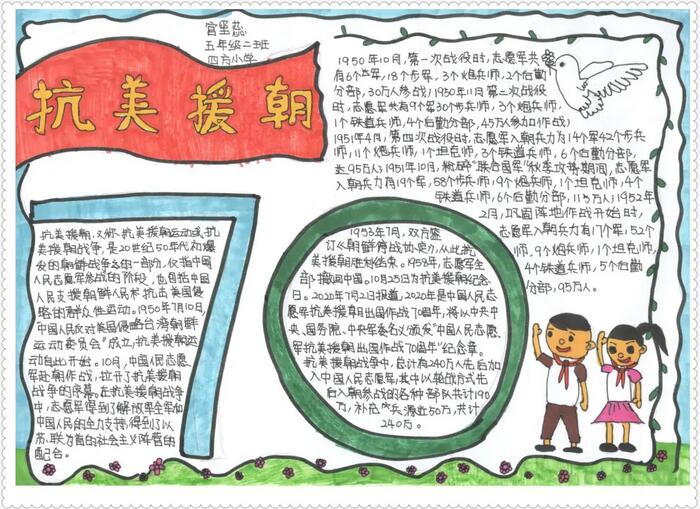 宫圣蕊
五年级二班
四方小学
抗美援朝
1950年10月,第一次战役时,志愿军共
有6个军,18个步军,3个炮兵师,2个后勤
分部,30万人参战;1950年11月第二次战役
时,志愿军共有9个军30个步兵师,3个炮兵师,
1个铁道兵师,4个后勤分部,45万人参加作战;
1951年4月,第四次战役时,志愿军入朝兵力为14个军42个步兵
师,11个炮兵师,1个坦克师,3个铁道兵师,6个后勤分部,
达95万人;1951年10月,粉碎"联合国军"秋季攻势期间,志愿军
入朝兵力有19个军,58个步兵师,9个炮兵师,1个坦克师,4个
铁道兵师,6个后勤分部,115万人;1952年
2月,巩固阵地作战开始时,
志愿军入朝兵力有17个军,52个
师,9个炮兵师,1个坦克师,
4个铁道兵师,5个后勤
分部,95万人。
抗美援朝,又称抗美援朝运动或抗
美援朝战争,是20世纪50年代初爆
发的朝鲜战争之的一部分,仅指中国
人民志愿军参战的阶段,也包括中国
人民支援朝鲜人民术抗击美国侵
略的群众性运动。1950年7月10日,
"中国人民反对美国侵略台湾朝鲜
运动委员会"成立,抗美援朝运
动自此开始。10月,中国人民志愿
军赴朝作战,拉开了抗美援朝
战争的序幕。在抗美援朝战争
中,志愿军得到了解放军全军和
中国人民的全力支持,得到了以
苏联为首的社会主义阵营的
配合。
1953年7月,双方签
订《朝鲜停战协定》,从此抗
美援朝胜利结束。1958年,志愿军全
部撤回中国。10月25日为抗美援朝纪念
日。2020年7月2日报道,2020年是中国人民志
愿军抗美援朝出国作战70周年,将以中共中
央、国务院、中央军委名义颁发"中国人民志愿
军抗美援朝出国作战70周年"纪念章。
抗美援朝战争中,总计有240万人先后加
入中国人民志愿军,其中以轮战方式先
后入朝参战的各种部队共计190
万,补充兵源近50万,共计
240万。